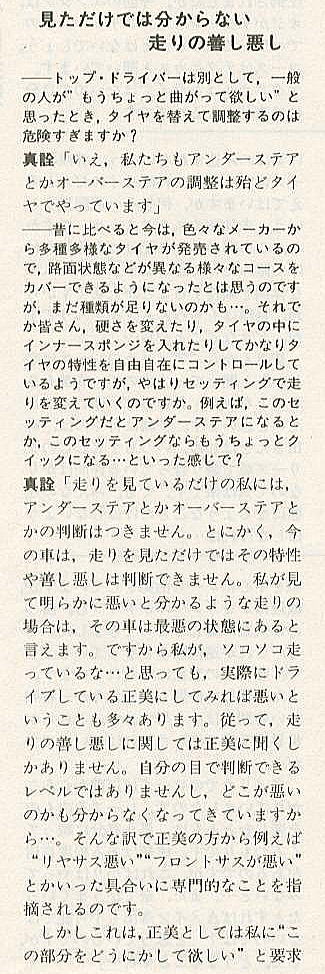 見ただけでは分からない
走りの善し悪し
――トップ・ドライバーは別として，一般
の人が“もうちょっと曲がって欲しい”と
思ったとき，タイヤを替えて調整するのは
危険すぎますか？
真詮「いえ，私たちもアンダーステア
とかオーバーステアの調整は殆どタイ
ヤでやっています」
――昔に比べると今は，色々なメーカーか
ら多種多様なタイヤが発売されているの
で，路面状態などが異なる様々なコースを
カバーできるようになったとは思うのです
が，まだ種類が足りないのかも…。それで
か皆さん，硬さを変えたり，タイヤの中に
インナースポンジを入れたりしてかなりタ
イヤの特性を自由自在にコントロールして
いるようですが，やはりセッティングで走
りを変えていくのですか。例えば，このセ
ッティングだとアンダーステアになると
か，このセッティングならもうちょっとク
イックになる…といった感じで？
真詮「走りを見ているだけの私には，
アンダーステアとかオーバーステアと
かの判断はつきません。とにかく，今
の車は，走りを見ただけではその特性
や善し悪しは判断できません。私が見
て明らかに悪いと分かるような走りの
場合は，その車は最悪の状態にあると
言えます。ですから私が，ソコソコ走
っているな…と思っても，実際にドラ
イブしている正美にしてみれば悪いと
いうことも多々あります。従って，走
りの善し悪しに関しては正美に聞くし
かありません。自分の目で判断できる
レベルではありませんし，どこが悪い
のかも分からなくなってきていますか
ら…。そんな訳で正美の方から例えば
“リヤサス悪い”“フロントサスが悪い”
とかいった具合いに専門的なことを指
摘されるのです。
しかしこれは，正美としては私に“こ
の部分をどうにかして欲しい”と要求